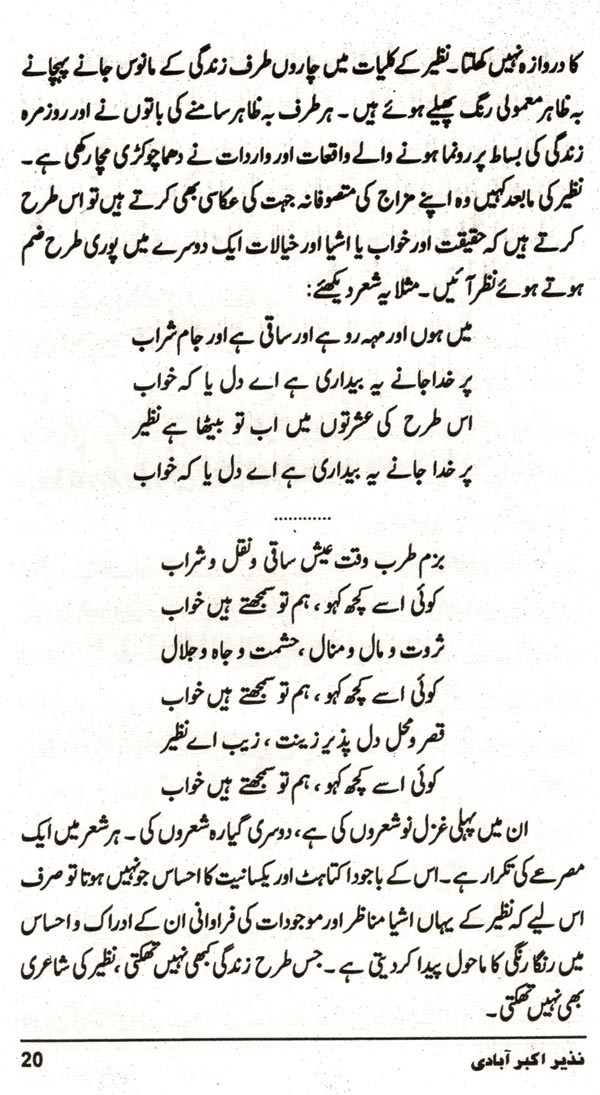 کا دروازہ نہیں کھلتا۔ نظیر کے کلیات میں چاروں طرف زندگی کے مانوس جانے پہچانے
بہ ظاہر معمولی رنگ پھیلے ہوئے ہیں۔ ہر طرف بہ ظاہر سامنے کی باتوں نے اور روزمرہ
زندگی کی بساط پر رونما ہونے والے واقعات اور واردات نے دھما چوکڑی مچا رکھی ہے۔
نظیر کی مابعد کہیں وہ اپنے مزاج کی متصوفانہ جہت کی عکاسی بھی کرتے ہیں تو اس طرح
کرتے ہیں کہ حقیقت اور خواب یا اشیا اور خیالات ایک دوسرے میں پوری طرح ضم
ہوتے ہوئے نظر آئیں۔ مثلا یہ شعر دیکھئے:
میں ہوں اور مہہ رو ہے اور ساقی ہے اور جام شراب
پر خدا جانے یہ بیداری ہے اے دل یا کہ خواب
اس طرح کی عشرتوں میں اب تو بیٹھا ہے نظیر
پر خدا جانے یہ بیداری ہے اے دل یا کہ خواب
............
بزم طرب وقت عیش ساقی و نقل و شراب
کوئی اسے کچھ کہو، ہم تو سمجھتے ہیں خواب
ثروت و مال و منال، حشمت و جاہ و جلال
کوئی اسے کچھ کہو، ہم تو سمجھتے ہیں خواب
قصر و محل دل پذیر زینت، زیب اے نظیر
کوئی اسے کچھ کہو، ہم تو سمجھتے ہیں خواب
ان میں پہلی غزل نو شعروں کی ہے، دوسری گیارہ شعروں کی۔ ہر شعر میں ایک
مصرعے کی تکرار ہے۔ اس کے باجود اکتاہٹ اور یکسانیت کا احساس جو نہیں ہوتا تو صرف
اس لیے کہ نظیر کے یہاں اشیا مناظر اور موجودات کی فراوانی ان کے ادراک و احساس
میں رنگا رنگی کا ماحول پیدا کر دیتی ہے۔ جس طرح زندگی کبھی نہیں تھکتی، نظیر کی شاعری
بھی نہیں تھکتی۔
نذیر اکبر آبادی 20